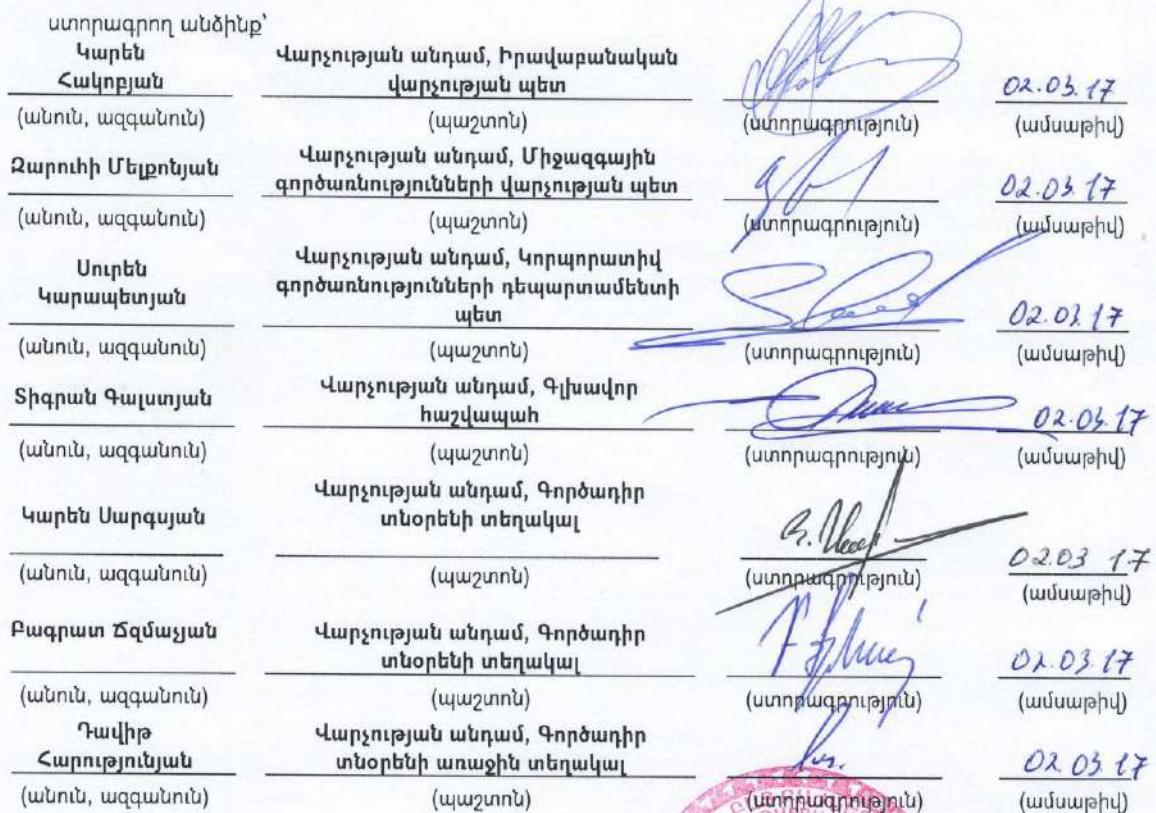 ստորագրող անձինք՝
Կարեն
Հակոբյան
Վարչության անդամ, Իրավաբանական
վարչության պետ
02.03.17
(անուն, ազգանուն) (պաշտոն) (ստորագրություն) (ամսաթիվ)
Զարուհի Մելքոնյան
Վարչության անդամ, Միջազգային
գործառնությունների վարչության պետ
02.03.17
(անուն, ազգանուն) (պաշտոն) (ստորագրություն) (ամսաթիվ)
Սուրեն
Կարապետյան
Վարչության անդամ, Կորպորատիվ
գործառնությունների դեպարտամենտի
պետ
02.03.17
(անուն, ազգանուն) (պաշտոն) (ստորագրություն) (ամսաթիվ)
Տիգրան Գալստյան
Վարչության անդամ, Գլխավոր
հաշվապահ
02.03.17
(անուն, ազգանուն) (պաշտոն) (ստորագրություն) (ամսաթիվ)
Կարեն Սարգսյան
Վարչության անդամ, Գործադիր
տնօրենի տեղակալ
02.03 17
(անուն, ազգանուն) (պաշտոն) (ստորագրություն) (ամսաթիվ)
Բագրատ Ճզմաչյան
Վարչության անդամ, Գործադիր
տնօրենի տեղակալ
02.03.17
(անուն, ազգանուն) (պաշտոն) (ստորագրություն) (ամսաթիվ)
Դավիթ
Հարությունյան
Վարչության անդամ, Գործադիր
տնօրենի առաջին տեղակալ
02.03.17
(անուն, ազգանուն) (պաշտոն) (ստորագրություն) (ամսաթիվ)